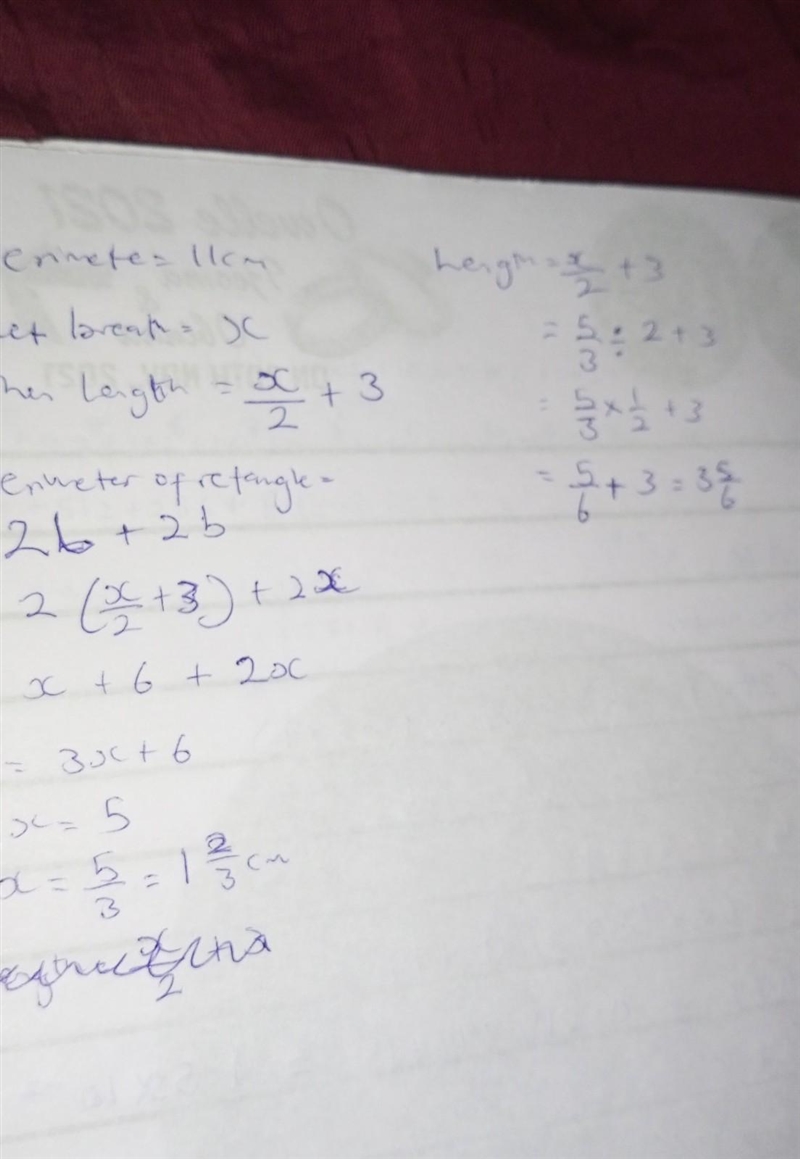 erimete = 11cm
et breath = x
hen length = x/2 + 3
erimeter of retangle =
2b + 2b
2 (x/2 + 3) + 2x
x + 6 + 2x
= 3x + 6
x = 5
x = 5/3 = 1 2/3 cm
length = x/2 + 3
= 5/3 ÷ 2 + 3
= 5/3 × 1/2 + 3
= 5/6 + 3 = 3 5/6
2021